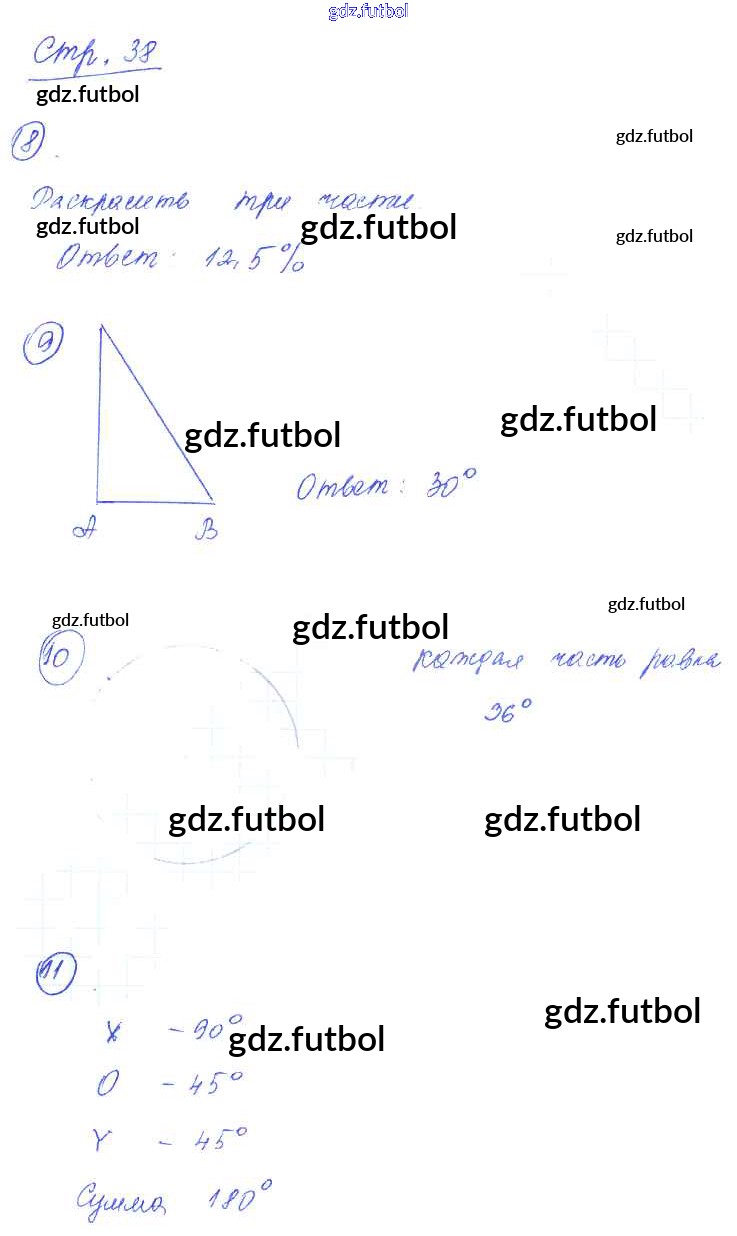 gdz.futbol
Стр. 38
gdz.futbol
8
gdz.futbol
Раскрасить три части
gdz.futbol
gdz.futbol
gdz.futbol
Ответ: 12,5%
9
gdz.futbol
gdz.futbol
Ответ: 30°
А В
gdz.futbol
gdz.futbol
gdz.futbol
10
каждая часть равна
36°
gdz.futbol
gdz.futbol
11
gdz.futbol
X - 90°
gdz.futbol
O - 45°
Y - 45°
Сумма 180°